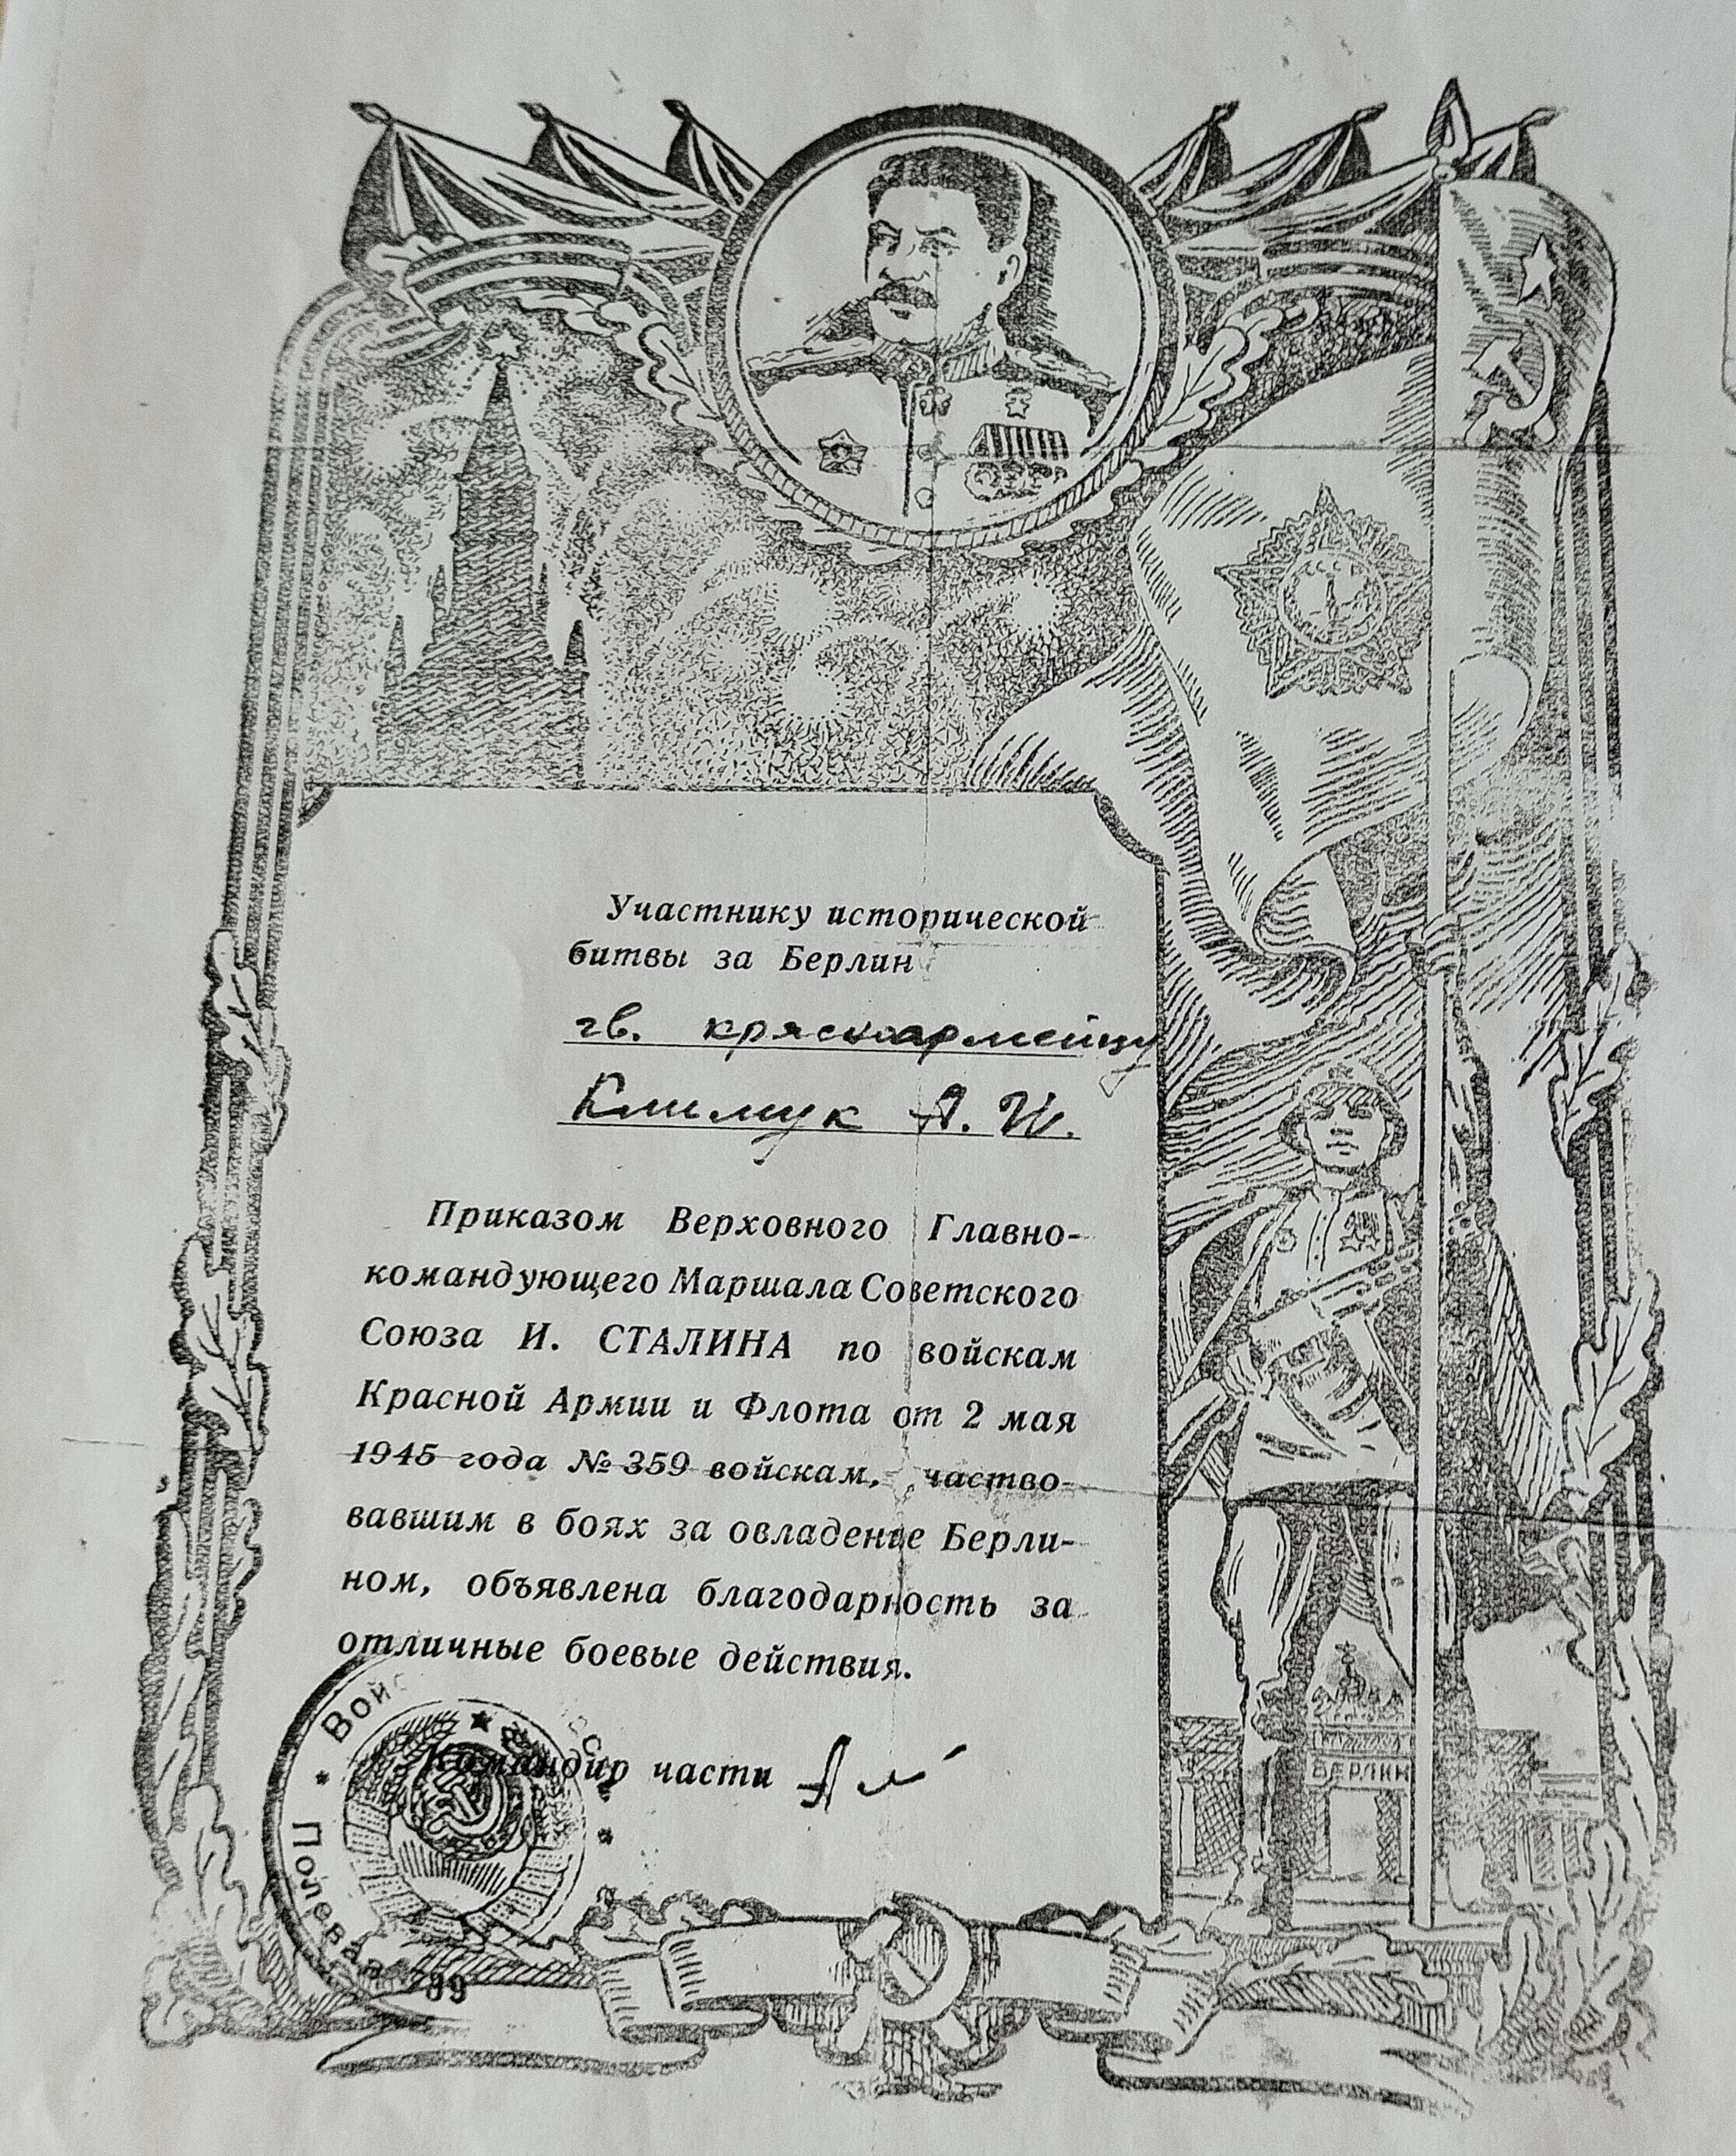 Участнику исторической
битвы за Берлин
гв. красноармейцу
Климук А. И.
Приказом Верховного Главно-
командующего Маршала Советского
Союза И. СТАЛИНА по войскам
Красной Армии и Флота от 2 мая
1945 года № 359 войскам, частво-
вавшим в боях за овладение Берли-
ном, объявлена благодарность за
отличные боевые действия.
Командир части
БЕРЛИН
Полевая